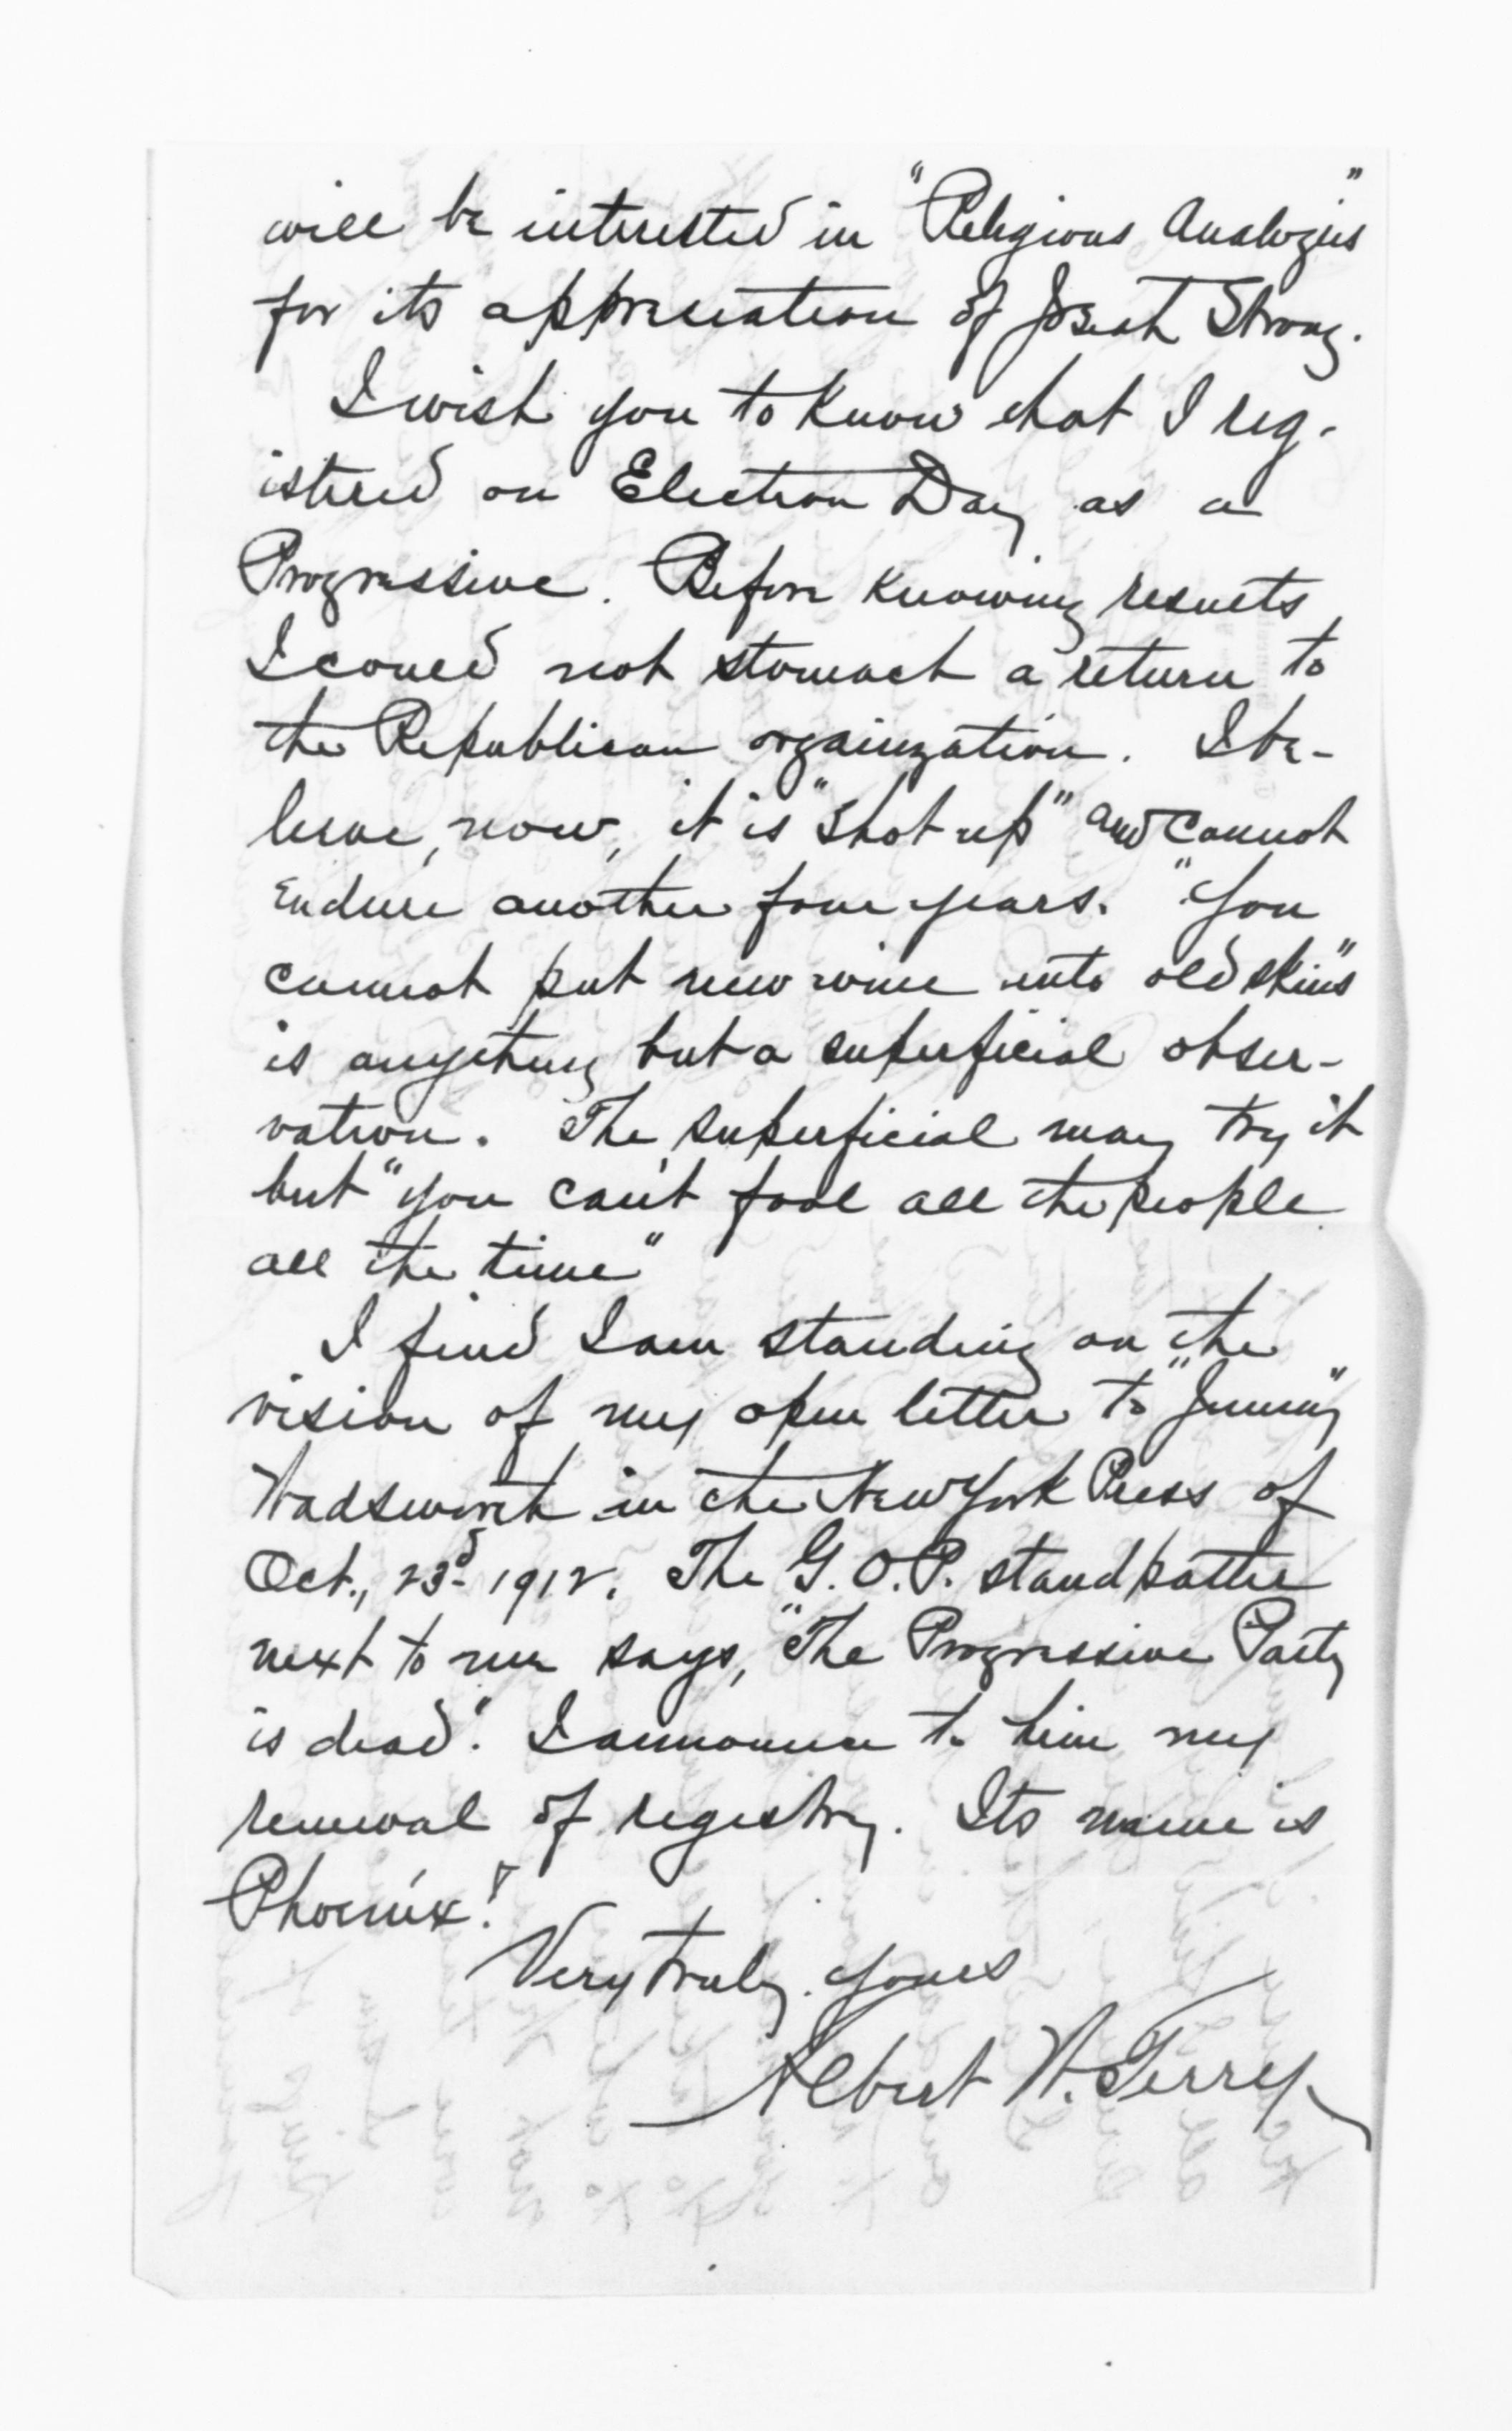 will be interested in "Religious Analogies"
for its appreciation of Josiah Strong.
I wish you to know that I reg-
istered on Election Day as a
Progressive. Before knowing results
I could not stomach a return to
the Republican orgainzation. I be-
lieve, now, it is "shot up" and cannot
endure another four years. "You
cannot put new wine into old skins"
is anything but a superficial obser-
vation. The superficial may try it
but "you can't fool all the people
all the time"
I find I am standing on the
vision of my open letter to "Jimmy"
Wadsworth in the New York Press of
Oct., 23d 1912. The G.O.P. standpatter
next to me says, "The Progressive Party
is dead". I announce to him my
renewal of registry. Its name is
Phoenix!
Very truly yours
Albert W. Ferrey